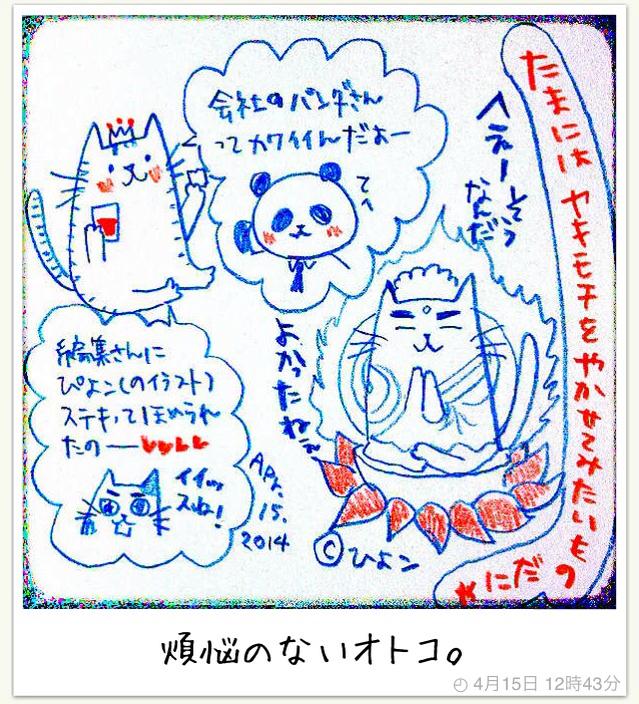 たまには ヤキモチをやかせてみたいもの
だにゃ
会社のパンダさん
ってカワイイんだぉー
てへ
へぇー そう
なんだ
よかったねぇ
編集さんに
ぴよこ(のイラスト)
ステキってほめられ
たのー
イイッ
スね!
APr.
15.
2014
©ひよこ
煩悩のないオトコ。
4月15日 12時43分